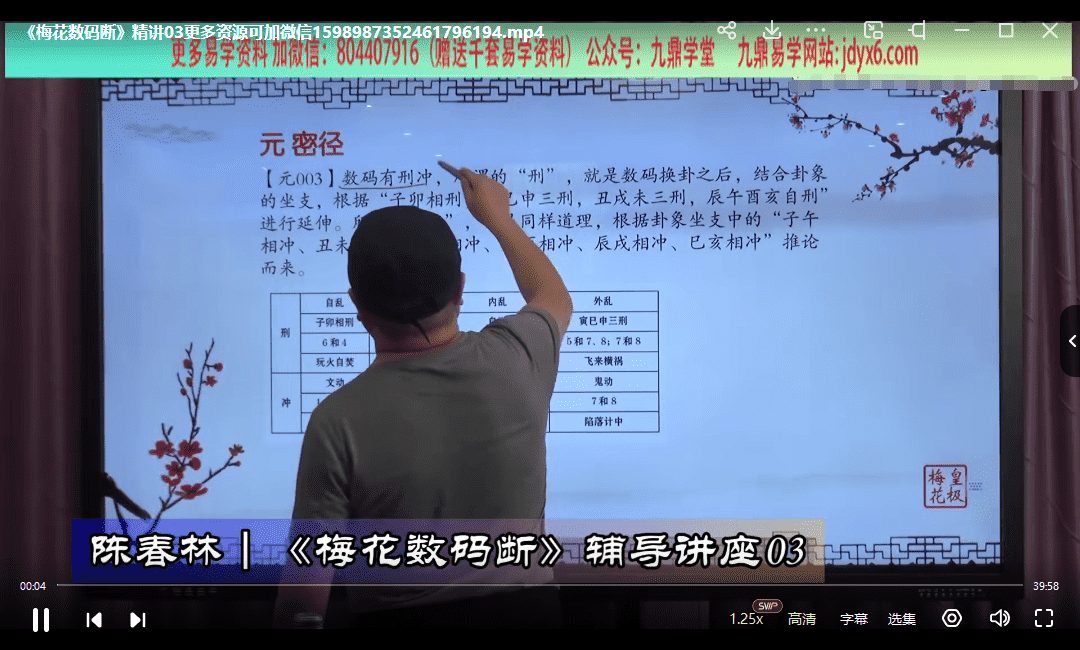 《梅花数码断》精讲03更多资源可加微信1598987352461796194.mp4
更多易学资料 加微信：804407916（赠送千套易学资料）公众号：九鼎学堂 九鼎易学网站:jdyx6.com
元 密径
【元003】数码有刑冲，的“刑”，就是数码换卦之后，结合卦象
的坐支，根据“子卯相刑巳申三刑，丑戌未三刑，辰午酉亥自刑”
进行延伸。”，同样道理，根据卦象坐支中的“子午
相冲、丑未相冲、辰戌相冲、巳亥相冲”推论
而来。
自乱 内乱 外乱
刑 子卯相刑 寅巳申三刑
6和4 5和7、8；7和8
玩火自焚 飞来横祸
冲 文动 鬼动
7和8
陷落计中
皇极
梅花
陈春林｜《梅花数码断》辅导讲座03
00:04 39:58
SVIP
1.25x 高清 字幕 选集